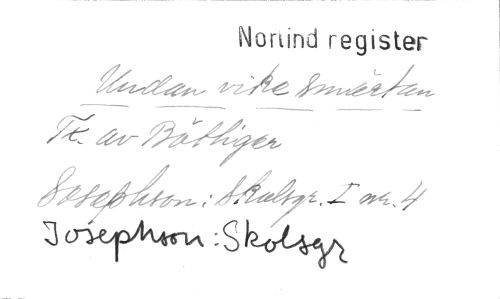 Norlind register
Undan vike smärtan
Tx. av Böttiger
Josephson: Skolsgr. I nr. 4
Josephson: Skolsgr